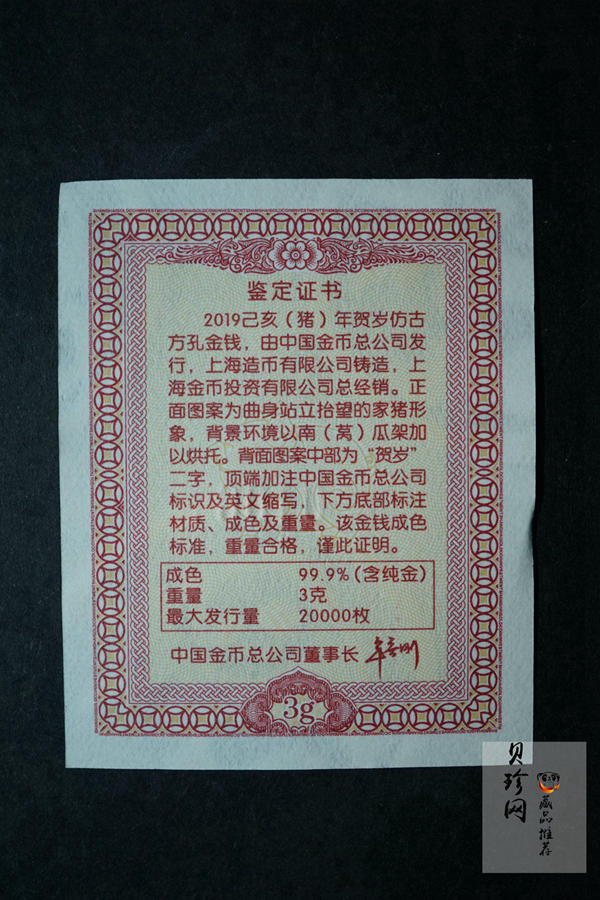 鉴定证书
2019己亥（猪）年贺岁仿古
方孔金钱，由中国金币总公司发
行，上海造币有限公司铸造，上
海金币投资有限公司总经销。正
面图案为曲身站立抬望的家猪形
象，背景环境以南（萵）瓜架加
以烘托。背面图案中部为“贺岁”
二字，顶端加注中国金币总公司
标识及英文缩写，下方底部标注
材质、成色及重量。该金钱成色
标准，重量合格，谨此证明。
成色 99.9%(含纯金)
重量 3克
最大发行量 20000枚
中国金币总公司董事长
3g
贝珍网
藏品推荐